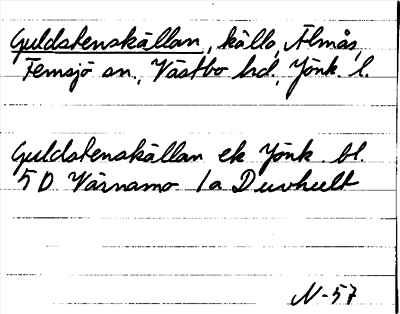 Guldstenskällan, källa, Älmås,
Femsjö sn., Västbo hd., Jönk. l.
Guldstenskällan ek Jönk. bl.
5D Värnamo 1a Duvhult
N-57